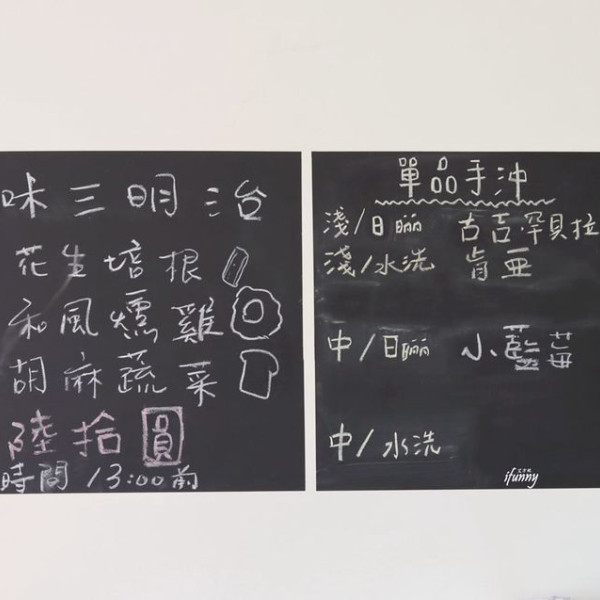 味三明治
花生培根
和風燻雞
胡麻蔬菜
陸拾圓
時間 13:00前
單品手沖
淺/日曬 古吉罕貝拉
淺/水洗 肯亞
中/日曬 小藍莓
中/水洗
ifunny